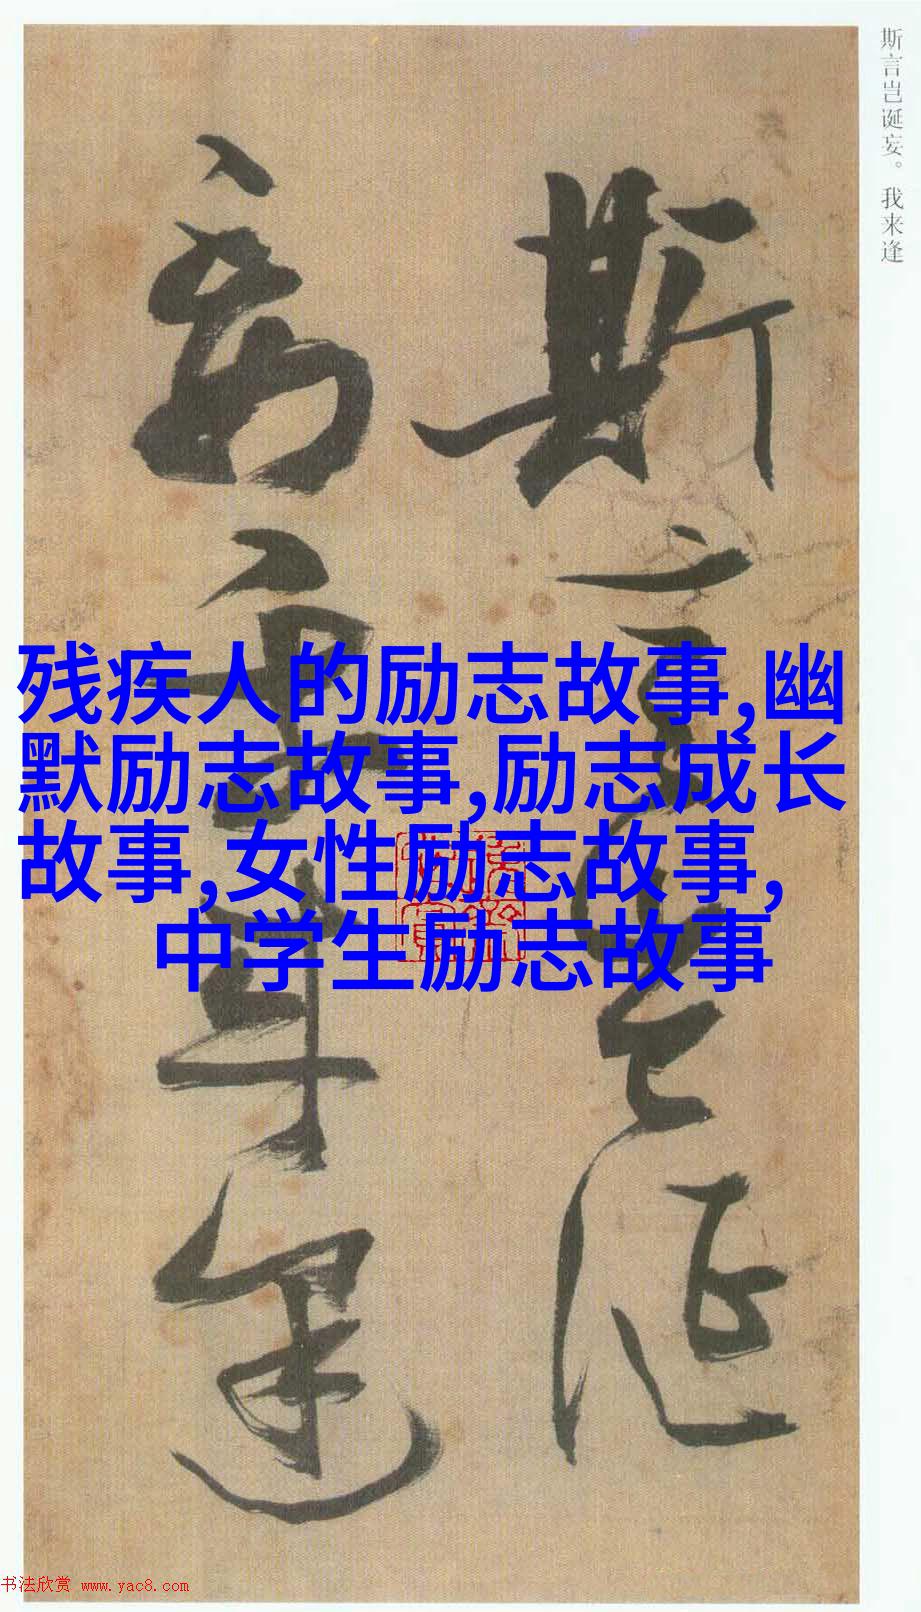 斯言岂诞妄。我来逢
斯言豈誕
妄我来逢
残疾人的励志故事,幽
默励志故事,励志成长
故事,女性励志故事,
中学生励志故事
书法欣赏 www.yac8.com